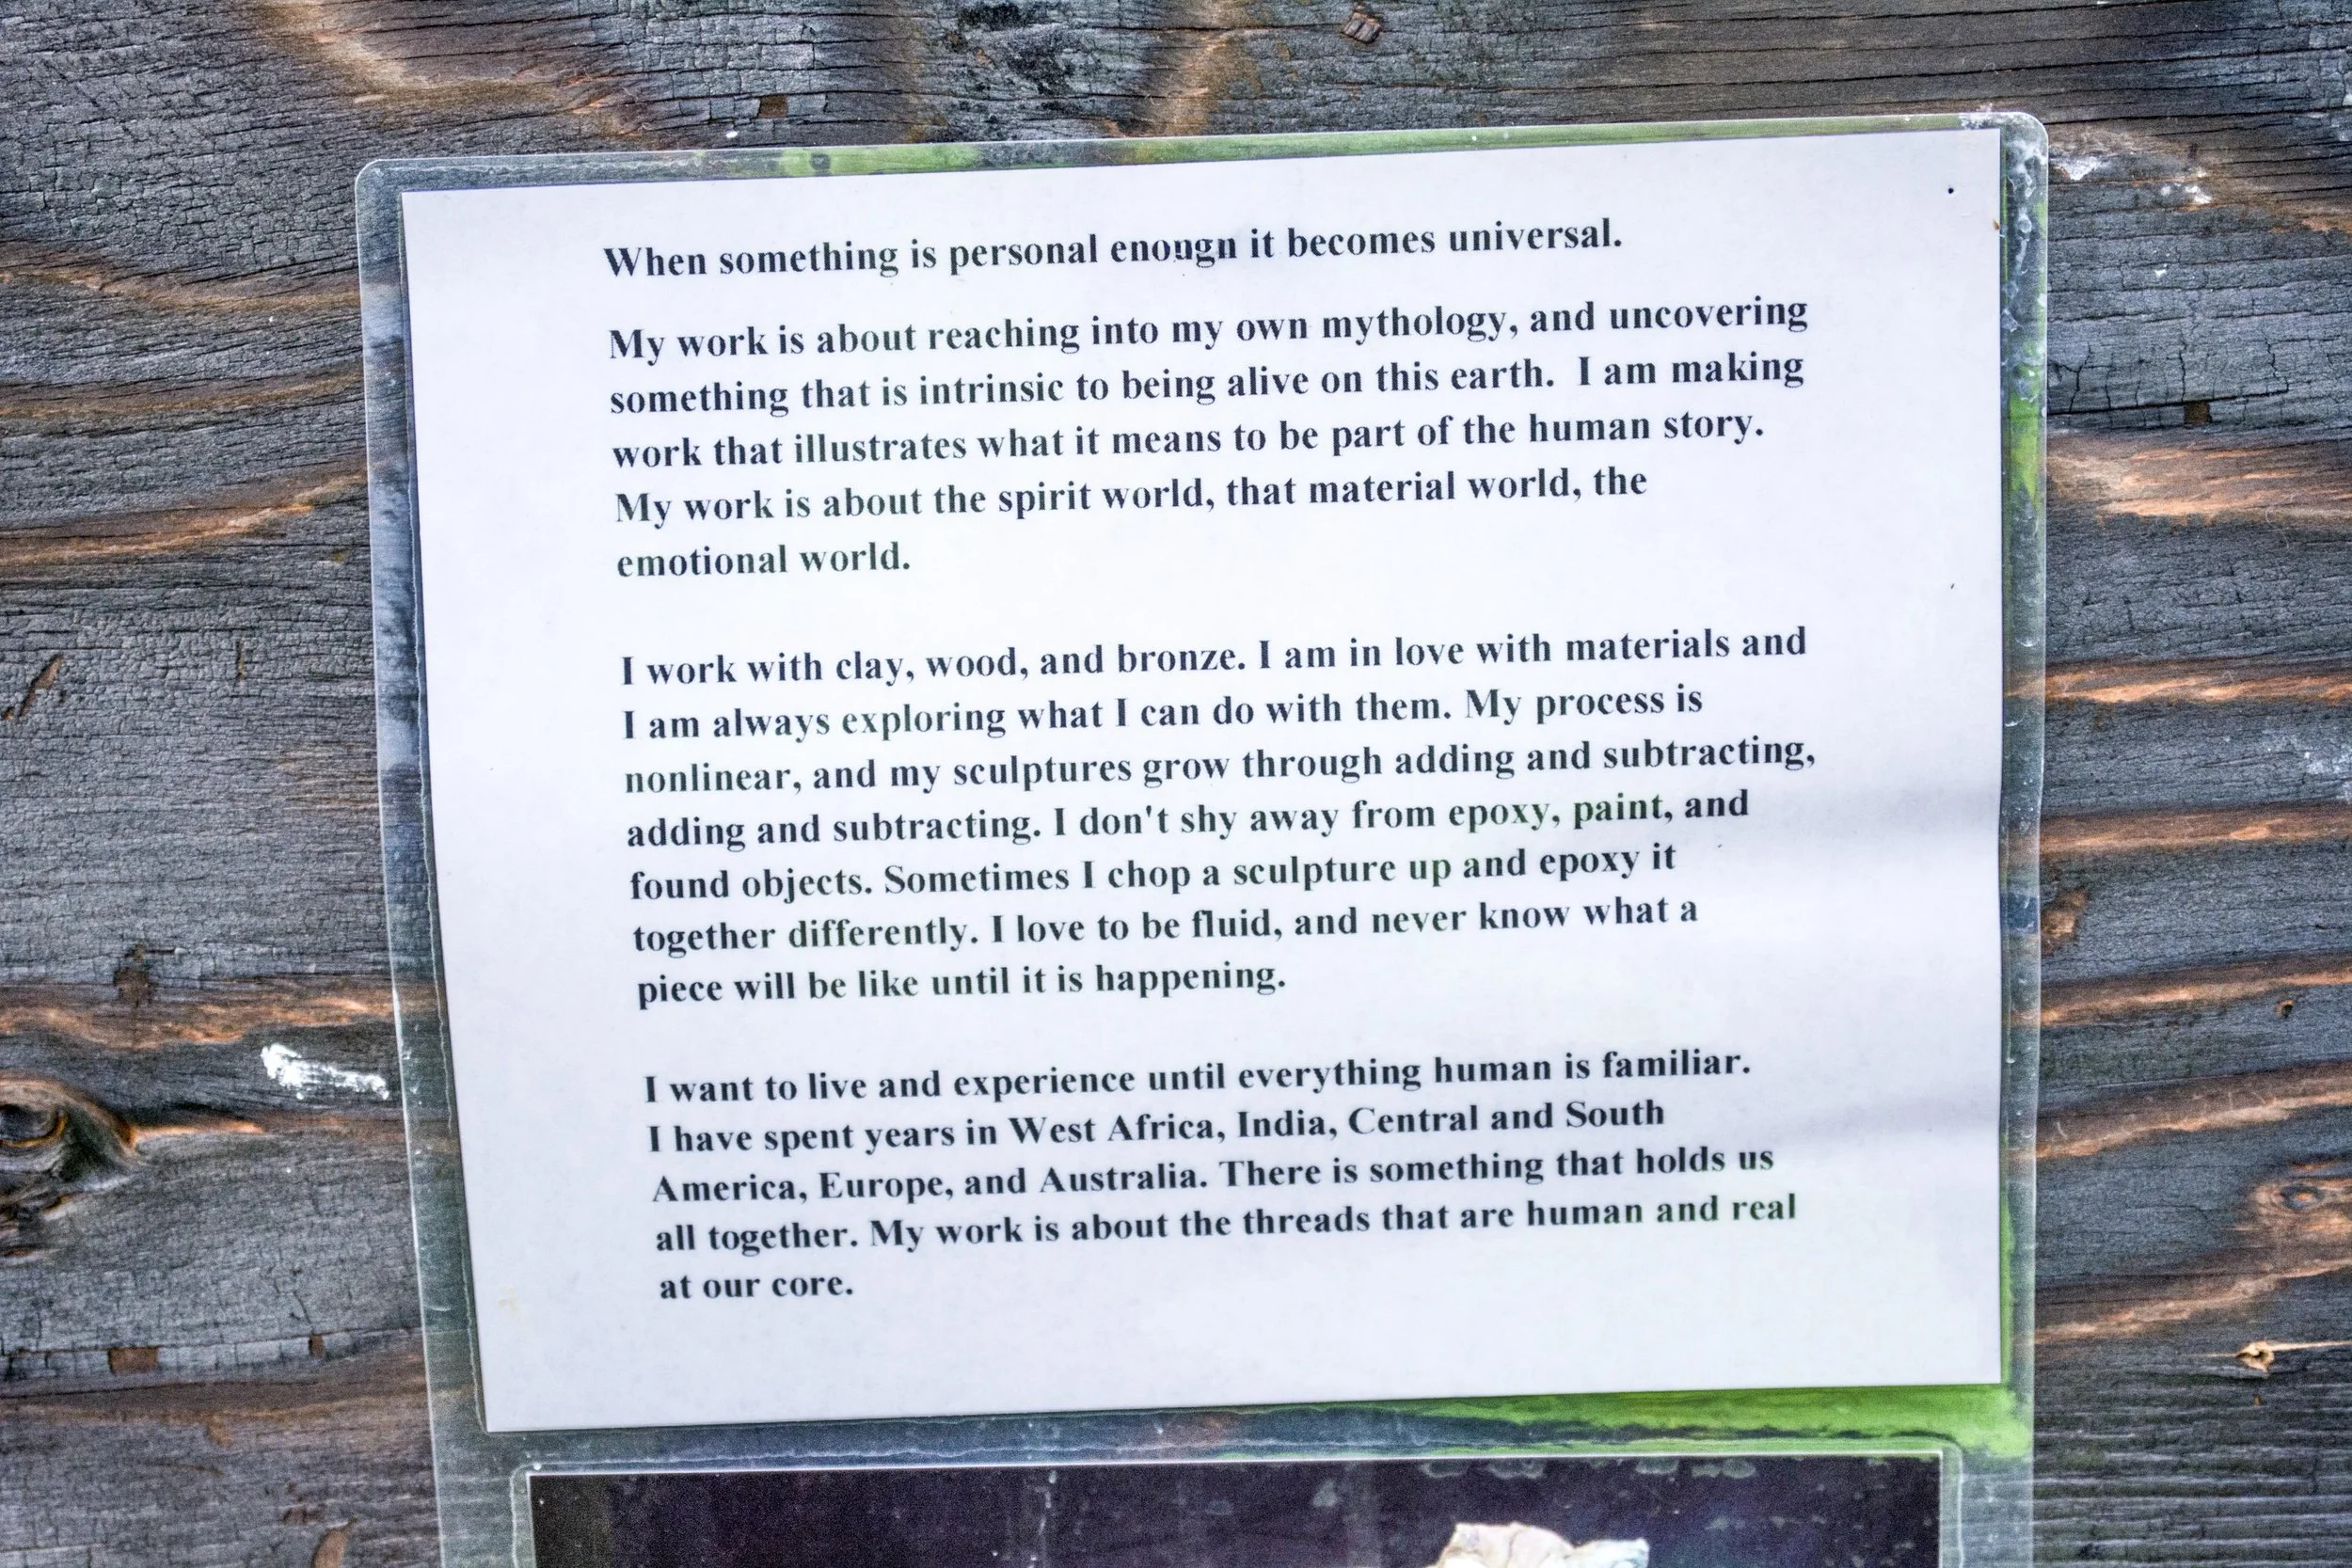 When something is personal enough it becomes universal.
My work is about reaching into my own mythology, and uncovering
something that is intrinsic to being alive on this earth.  I am making
work that illustrates what it means to be part of the human story.
My work is about the spirit world, that material world, the
emotional world.
I work with clay, wood, and bronze. I am in love with materials and
I am always exploring what I can do with them. My process is
nonlinear, and my sculptures grow through adding and subtracting,
adding and subtracting. I don't shy away from epoxy, paint, and
found objects. Sometimes I chop a sculpture up and epoxy it
together differently. I love to be fluid, and never know what a
piece will be like until it is happening.
I want to live and experience until everything human is familiar.
I have spent years in West Africa, India, Central and South
America, Europe, and Australia. There is something that holds us
all together. My work is about the threads that are human and real
at our core.